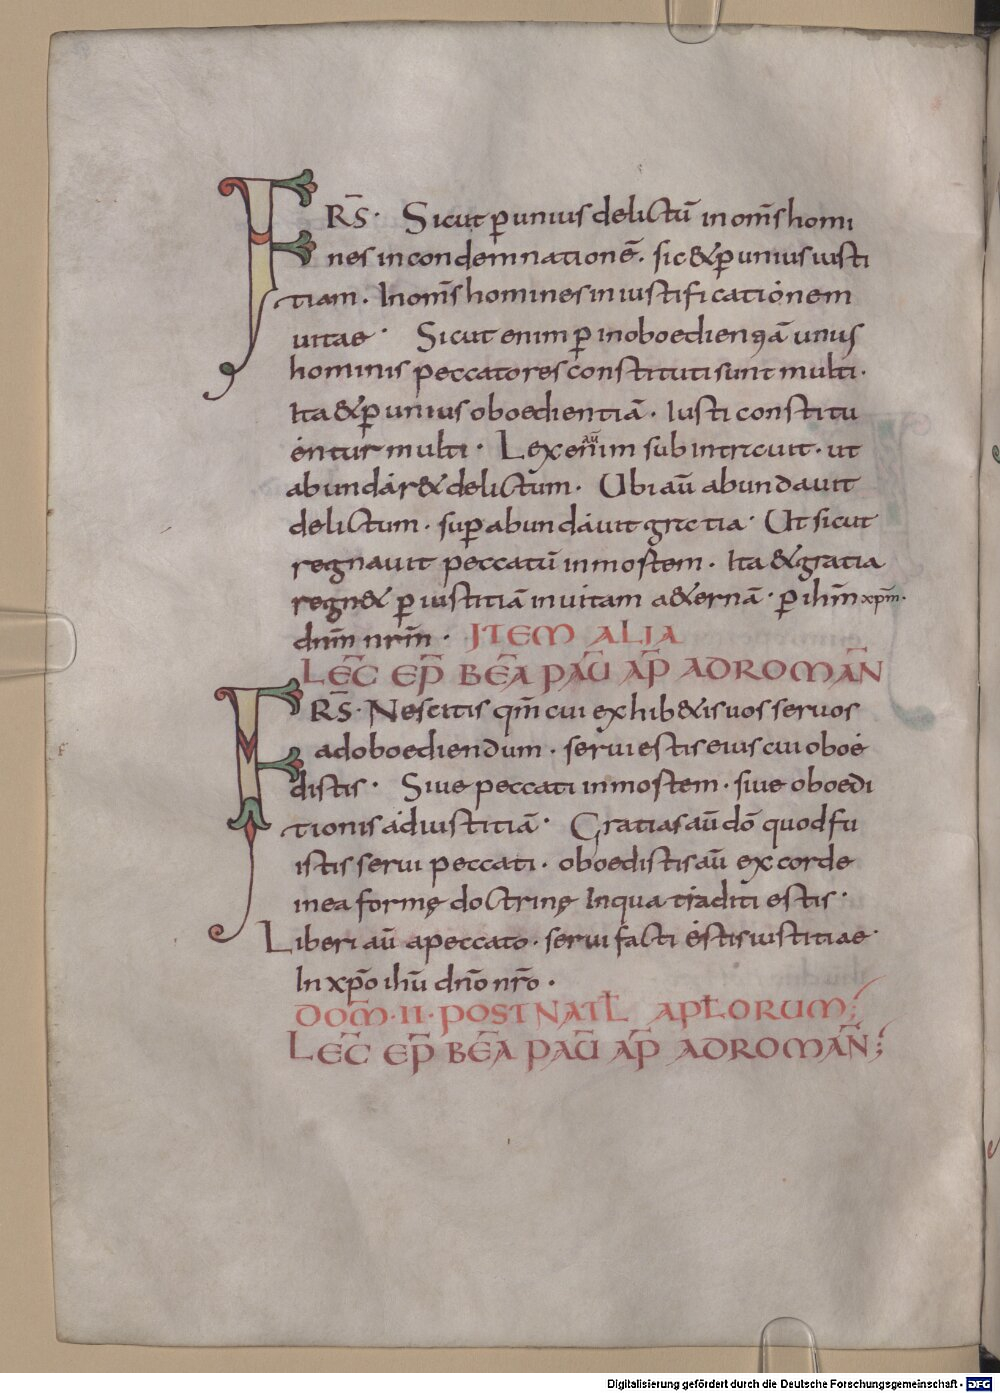 FRS̄· Sicut ꝑ unius delictū in om̄s homi
nes in condemnationē. sic & ꝑ unius iusti
tiam. In om̄s homines in iustificationem
uitae· Sicut enim ꝑ inoboedientiā unius
hominis peccatores constituti sunt multi.
Ita & ꝑ unius oboedientiā. Iusti constitu
entur multi· Lex enim aū subintrauit. ut
abundar& delictum. Ubi aū abundauit
delictum. suꝑabundauit gratia· Ut sicut
regnauit peccatū in mortem. Ita & gratia
regn& ꝑ iustitiā in uitam a&ernā· ꝑ ih̄m xp̄m.
dn̄m nr̄m· ITEM ALIA
LEC̄ EP̄ BEĀ PAŪ AP̄ AD ROMAN̄
FRS̄· Nescitis qm̄ cui exhib&is uos seruos
ad oboediendum. serui estis eius cui oboe
distis· Siue peccati in mortem. siue oboedi
tionis ad iustitiā· Gratias aū dō quod fu
istis serui peccati. oboedistis aū ex corde
in ea formę doctrinę In qua traditi estis·
Liberi aū a peccato. serui facti estis iustitiae·
In xp̄o ih̄ū dn̄o nr̄o.
DOM̄·II·POST NATL̄ APL̄ORUM;
LEC̄ EP̄ BEĀ PAŪ AP̄ AD ROMAN̄;
Digitalisierung gefördert durch die Deutsche Forschungsgemeinschaft - DFG